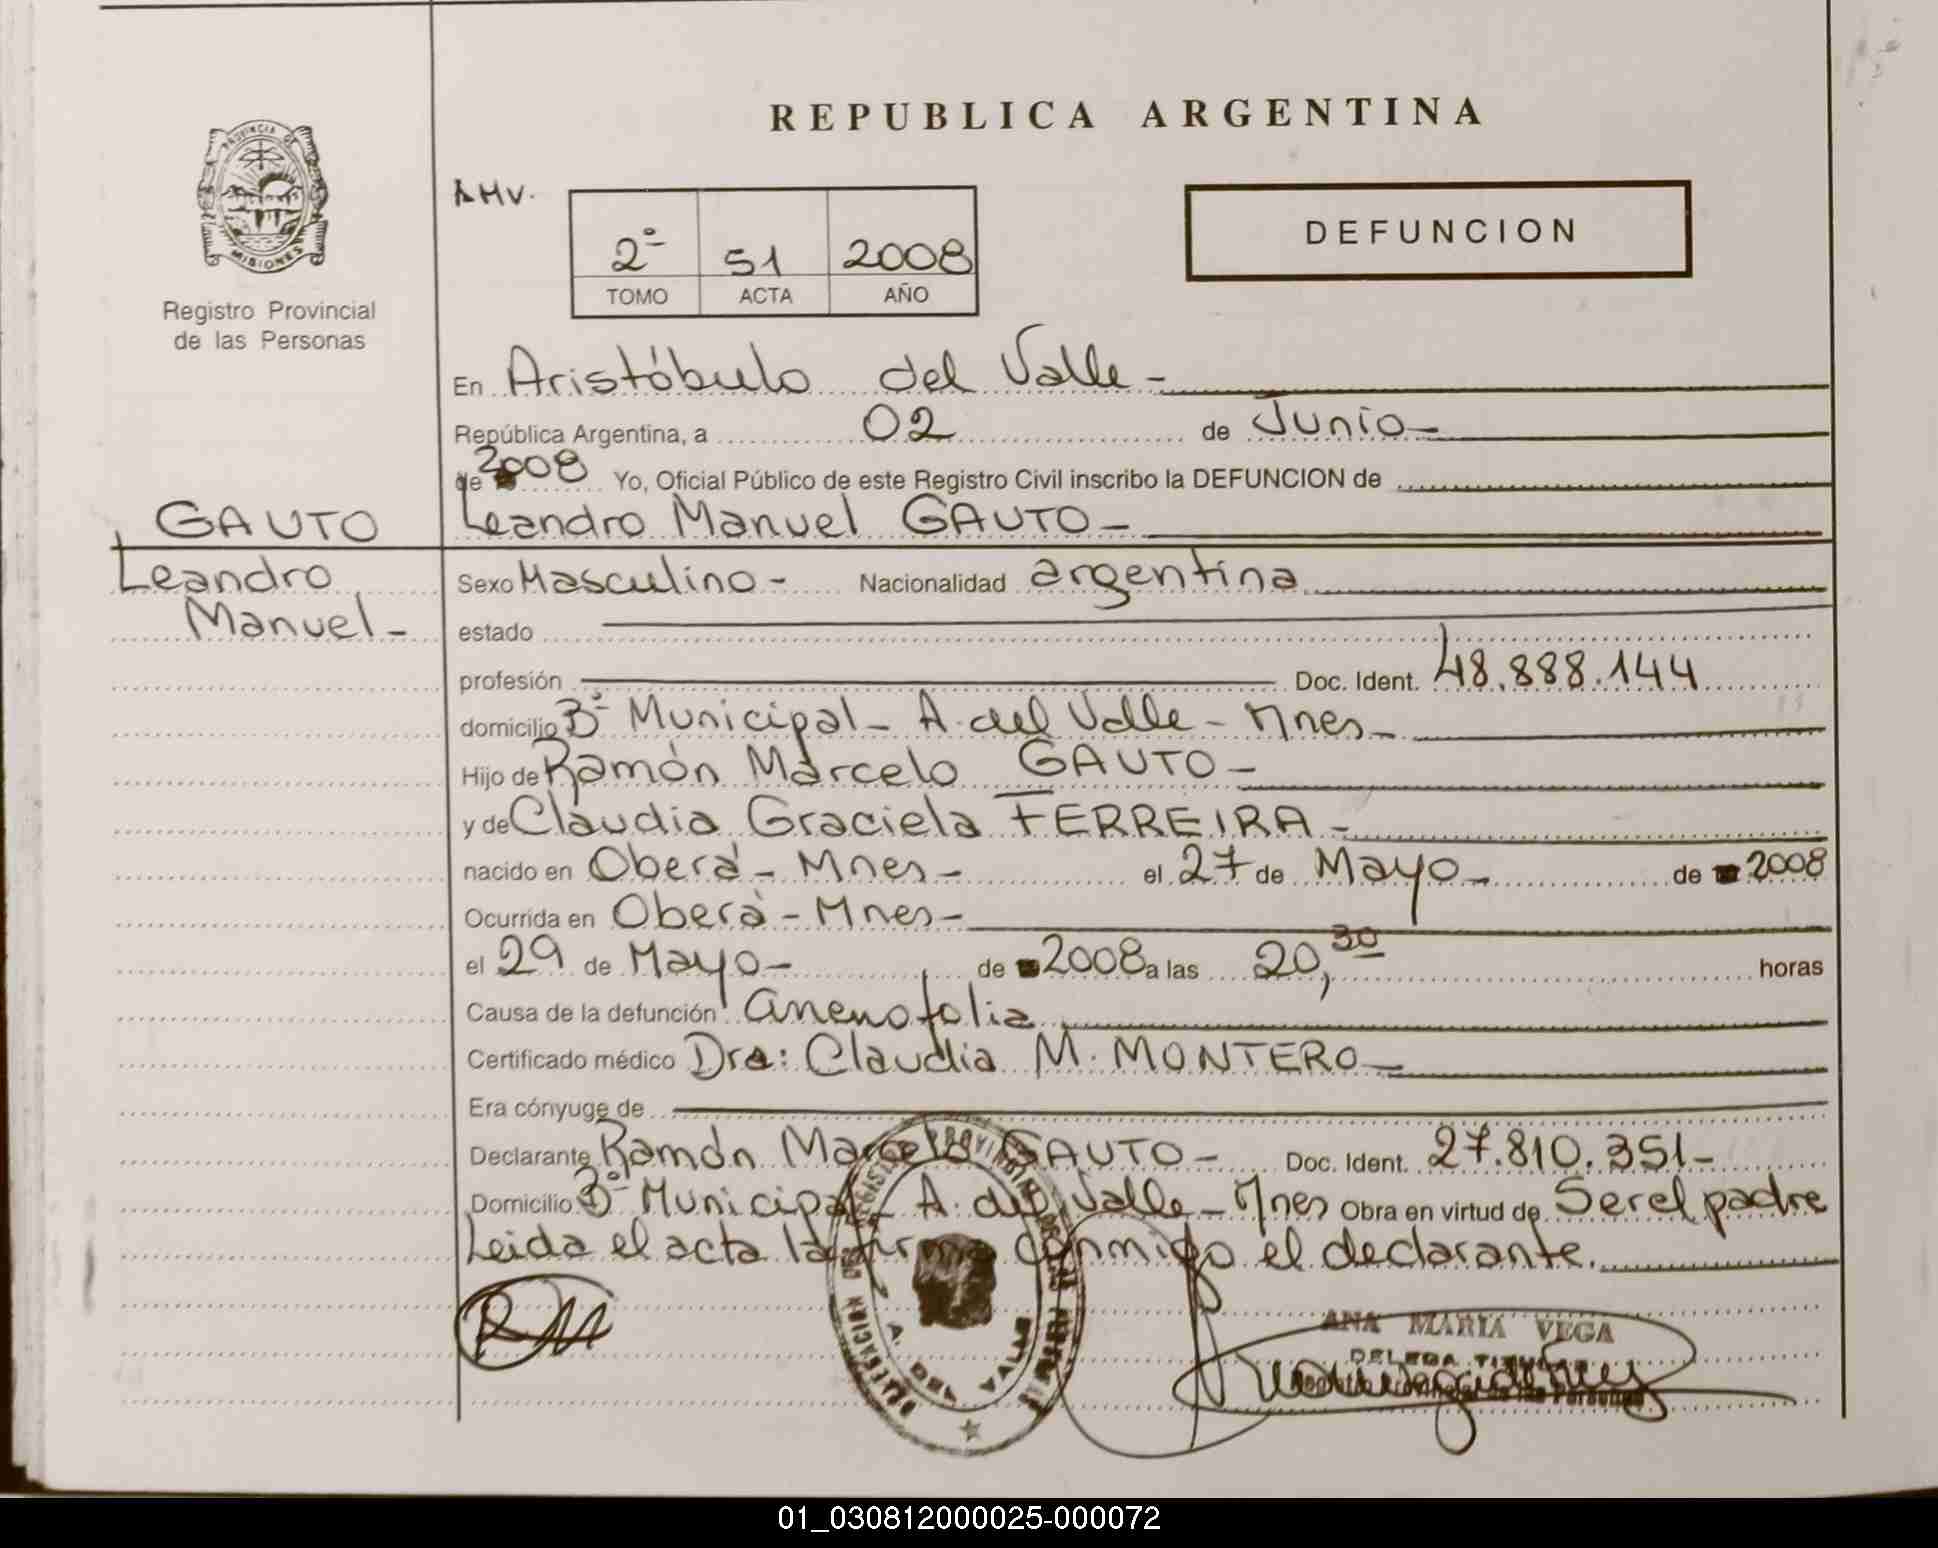 REPUBLICA ARGENTINA
PROVINCIA DE
MISIONES
Registro Provincial
de las Personas
AMV.
2º 51 2008
TOMO ACTA AÑO
DEFUNCION
En Aristóbulo del Valle-
República Argentina, a 02 de Junio-
de 2008 Yo, Oficial Público de este Registro Civil inscribo la DEFUNCION de
GAUTO
Leandro Manuel GAUTO-
Leandro
Manuel-
Sexo Masculino- Nacionalidad argentina
estado
profesión Doc. Ident. 48.888.144
domicilio Bº Municipal- A. del Valle- Mnes-
Hijo de Ramón Marcelo GAUTO-
y de Claudia Graciela FERREIRA-
nacido en Oberá- Mnes- el 27 de Mayo- de 2008
Ocurrida en Oberá- Mnes-
el 29 de Mayo- de 2008 a las 20,30 horas
Causa de la defunción anenofolia
Certificado médico Dra: Claudia M. MONTERO-
Era cónyuge de
Declarante Ramón Marcelo GAUTO- Doc. Ident. 27.810.351-
Domicilio Bº Municipal- A. del Valle- Mnes Obra en virtud de Ser el padre
Leida el acta la firma conmigo el declarante.
RM
A. DEL VALLE
ANA MARIA VEGA
DELEGA TITULAR
01_030812000025-000072